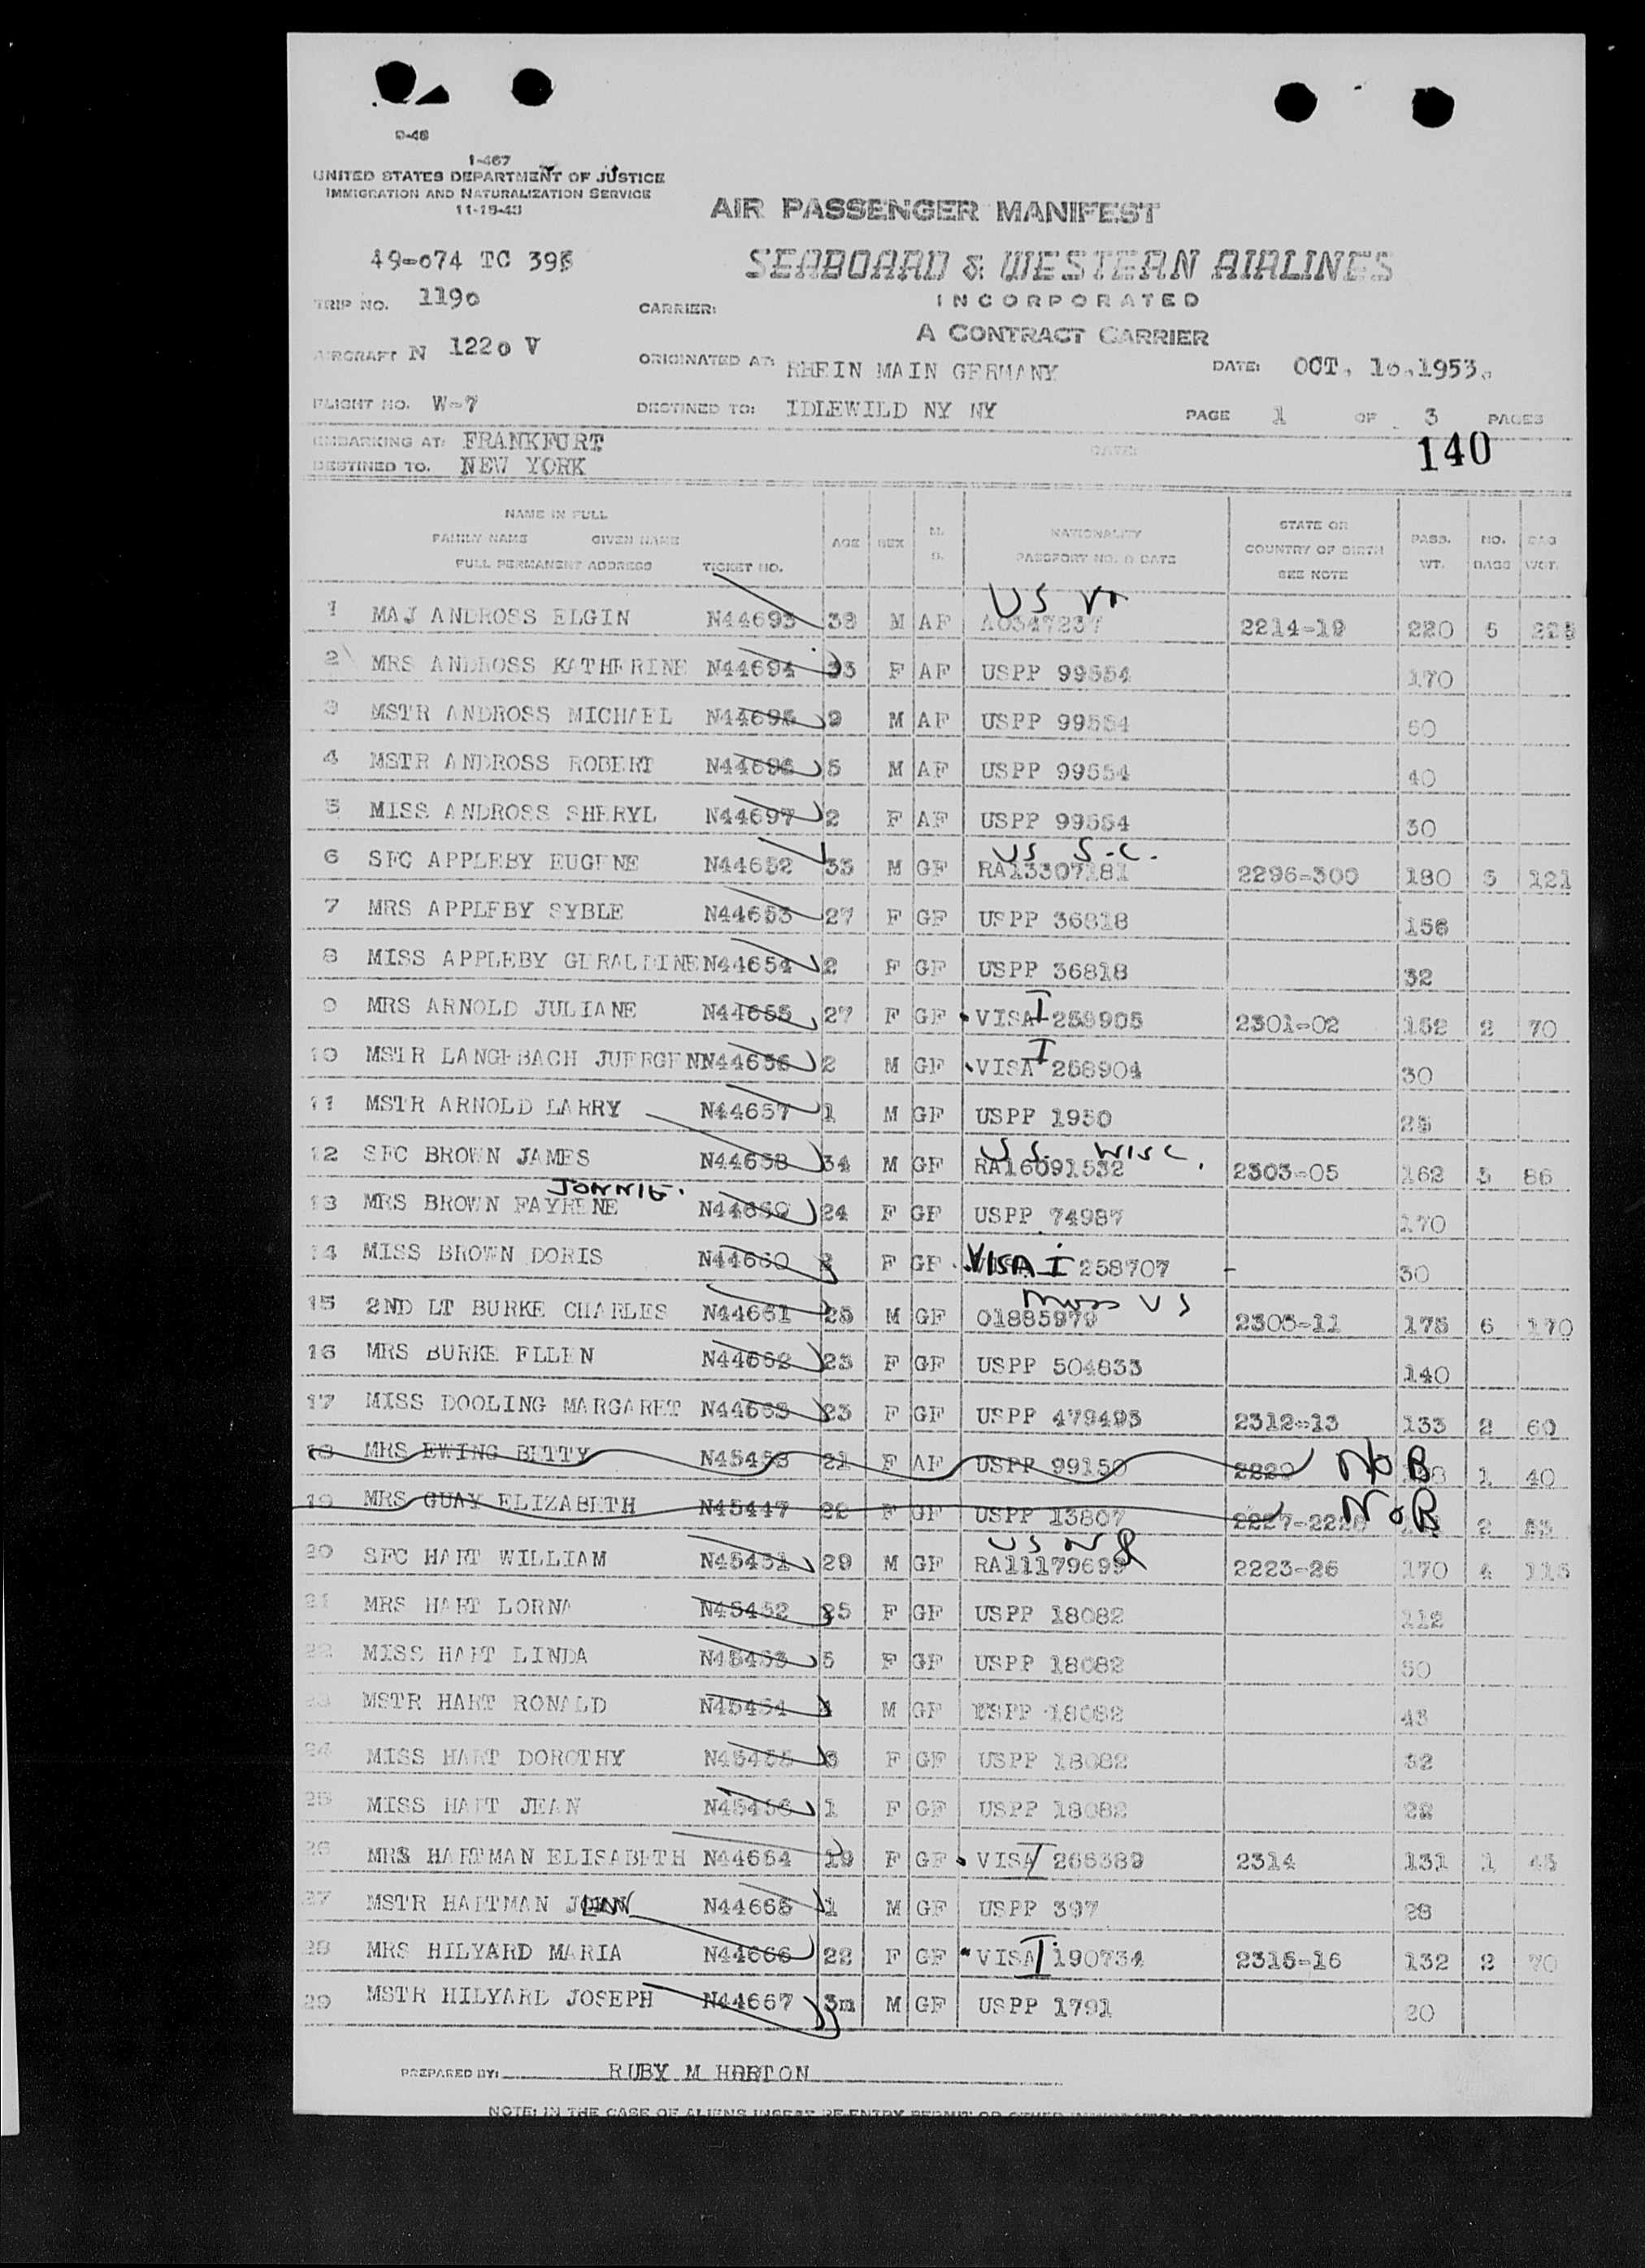 9-48
1-467
UNITED STATES DEPARTMENT OF JUSTICE
IMMIGRATION AND NATURALIZATION SERVICE
11-15-43
AIR PASSENGER MANIFEST
49-074 TC 395
SEABOARD & WESTERN AIRLINES
INCORPORATED
TRIP NO. 1190 CARRIER:
A CONTRACT CARRIER
AIRCRAFT N 1220 V ORIGINATED AT: RHEIN MAIN GERMANY DATE: OCT. 10.1953.
FLIGHT NO. W-7 DESTINED TO: IDLEWILD NY NY PAGE 1 OF 3 PAGES
EMBARKING AT: FRANKFURT DATE: 140
DESTINED TO. NEW YORK
NAME IN FULL
FAMILY NAME GIVEN NAME
FULL PERMANENT ADDRESS TICKET NO. AGE SEX M. S. NATIONALITY PASSPORT NO. & DATE STATE OR COUNTRY OF BIRTH SEE NOTE PASS. WT. NO. BAGS BAG WGT.
US
1 MAJ ANDROSS ELGIN N44693 38 M AF A0347237 2214-19 220 5 225
2 MRS ANDROSS KATHERINE N44694 33 F AF USPP 99554 170
3 MSTR ANDROSS MICHAEL N44695 9 M AF USPP 99554 50
4 MSTR ANDROSS ROBERT N44696 5 M AF USPP 99554 40
5 MISS ANDROSS SHERYL N44697 2 F AF USPP 99554 30
US S.C.
6 SFC APPLEBY EUGENE N44652 33 M GF RA13307181 2296-300 180 5 121
7 MRS APPLEBY SYBLE N44653 27 F GF USPP 36818 156
8 MISS APPLEBY GERALDINE N44654 2 F GF USPP 36818 32
9 MRS ARNOLD JULIANE N44655 27 F GF VISA I 258905 2301-02 152 2 70
10 MSTR LANGEBACH JUERGEN N44656 2 M GF VISA I 258904 30
11 MSTR ARNOLD LARRY N44657 1 M GF USPP 1950 25
US. WISC.
12 SFC BROWN JAMES N44658 34 M GF RA16091532 2303-05 162 3 86
JONNIE.
13 MRS BROWN FAYRENE N44659 24 F GF USPP 74987 170
14 MISS BROWN DORIS N44660 F GF VISA I 258707 - 30
Miss US
15 2ND LT BURKE CHARLES N44661 25 M GF 01885979 2305-11 175 6 170
16 MRS BURKE ELLEN N44662 23 F GF USPP 504833 140
17 MISS DOOLING MARGARET N44663 23 F GF USPP 479493 2312-13 133 2 60
18 MRS EWING BETTY N45458 21 F AF USPP 99150 2229 NoB 1 40
19 MRS GUAY ELIZABETH N45447 22 F GF USPP 13807 2227-2228 NoB 2 53
US
20 SFC HART WILLIAM N45451 29 M GF RA11179699 2223-26 170 4 115
21 MRS HART LORNA N45452 25 F GF USPP 18082 112
22 MISS HART LINDA N45453 5 F GF USPP 18082 50
23 MSTR HART RONALD N45454 4 M GF USPP 18082 43
24 MISS HART DOROTHY N45455 3 F GF USPP 18082 32
25 MISS HART JEAN N45456 1 F GF USPP 18082 22
26 MRS HARTMAN ELISABETH N44664 19 F GF VISA I 266389 2314 131 1 45
27 MSTR HARTMAN N44665 1 M GF USPP 397 28
28 MRS HILYARD MARIA N44666 22 F GF VISA I 190734 2315-16 132 2 70
29 MSTR HILYARD JOSEPH N44667 3m M GF USPP 1791 20
PREPARED BY: RUBY M HORTON
NOTE: IN THE CASE OF ALIENS INSERT RE-ENTRY PERMIT OR OTHER